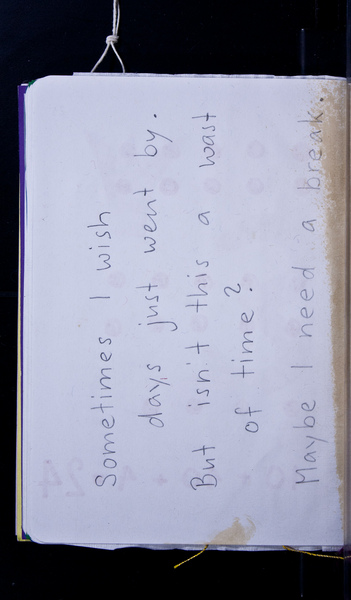 Sometimes I wish
days just went by.
But isn't this a wast
of time?
Maybe I need a break.